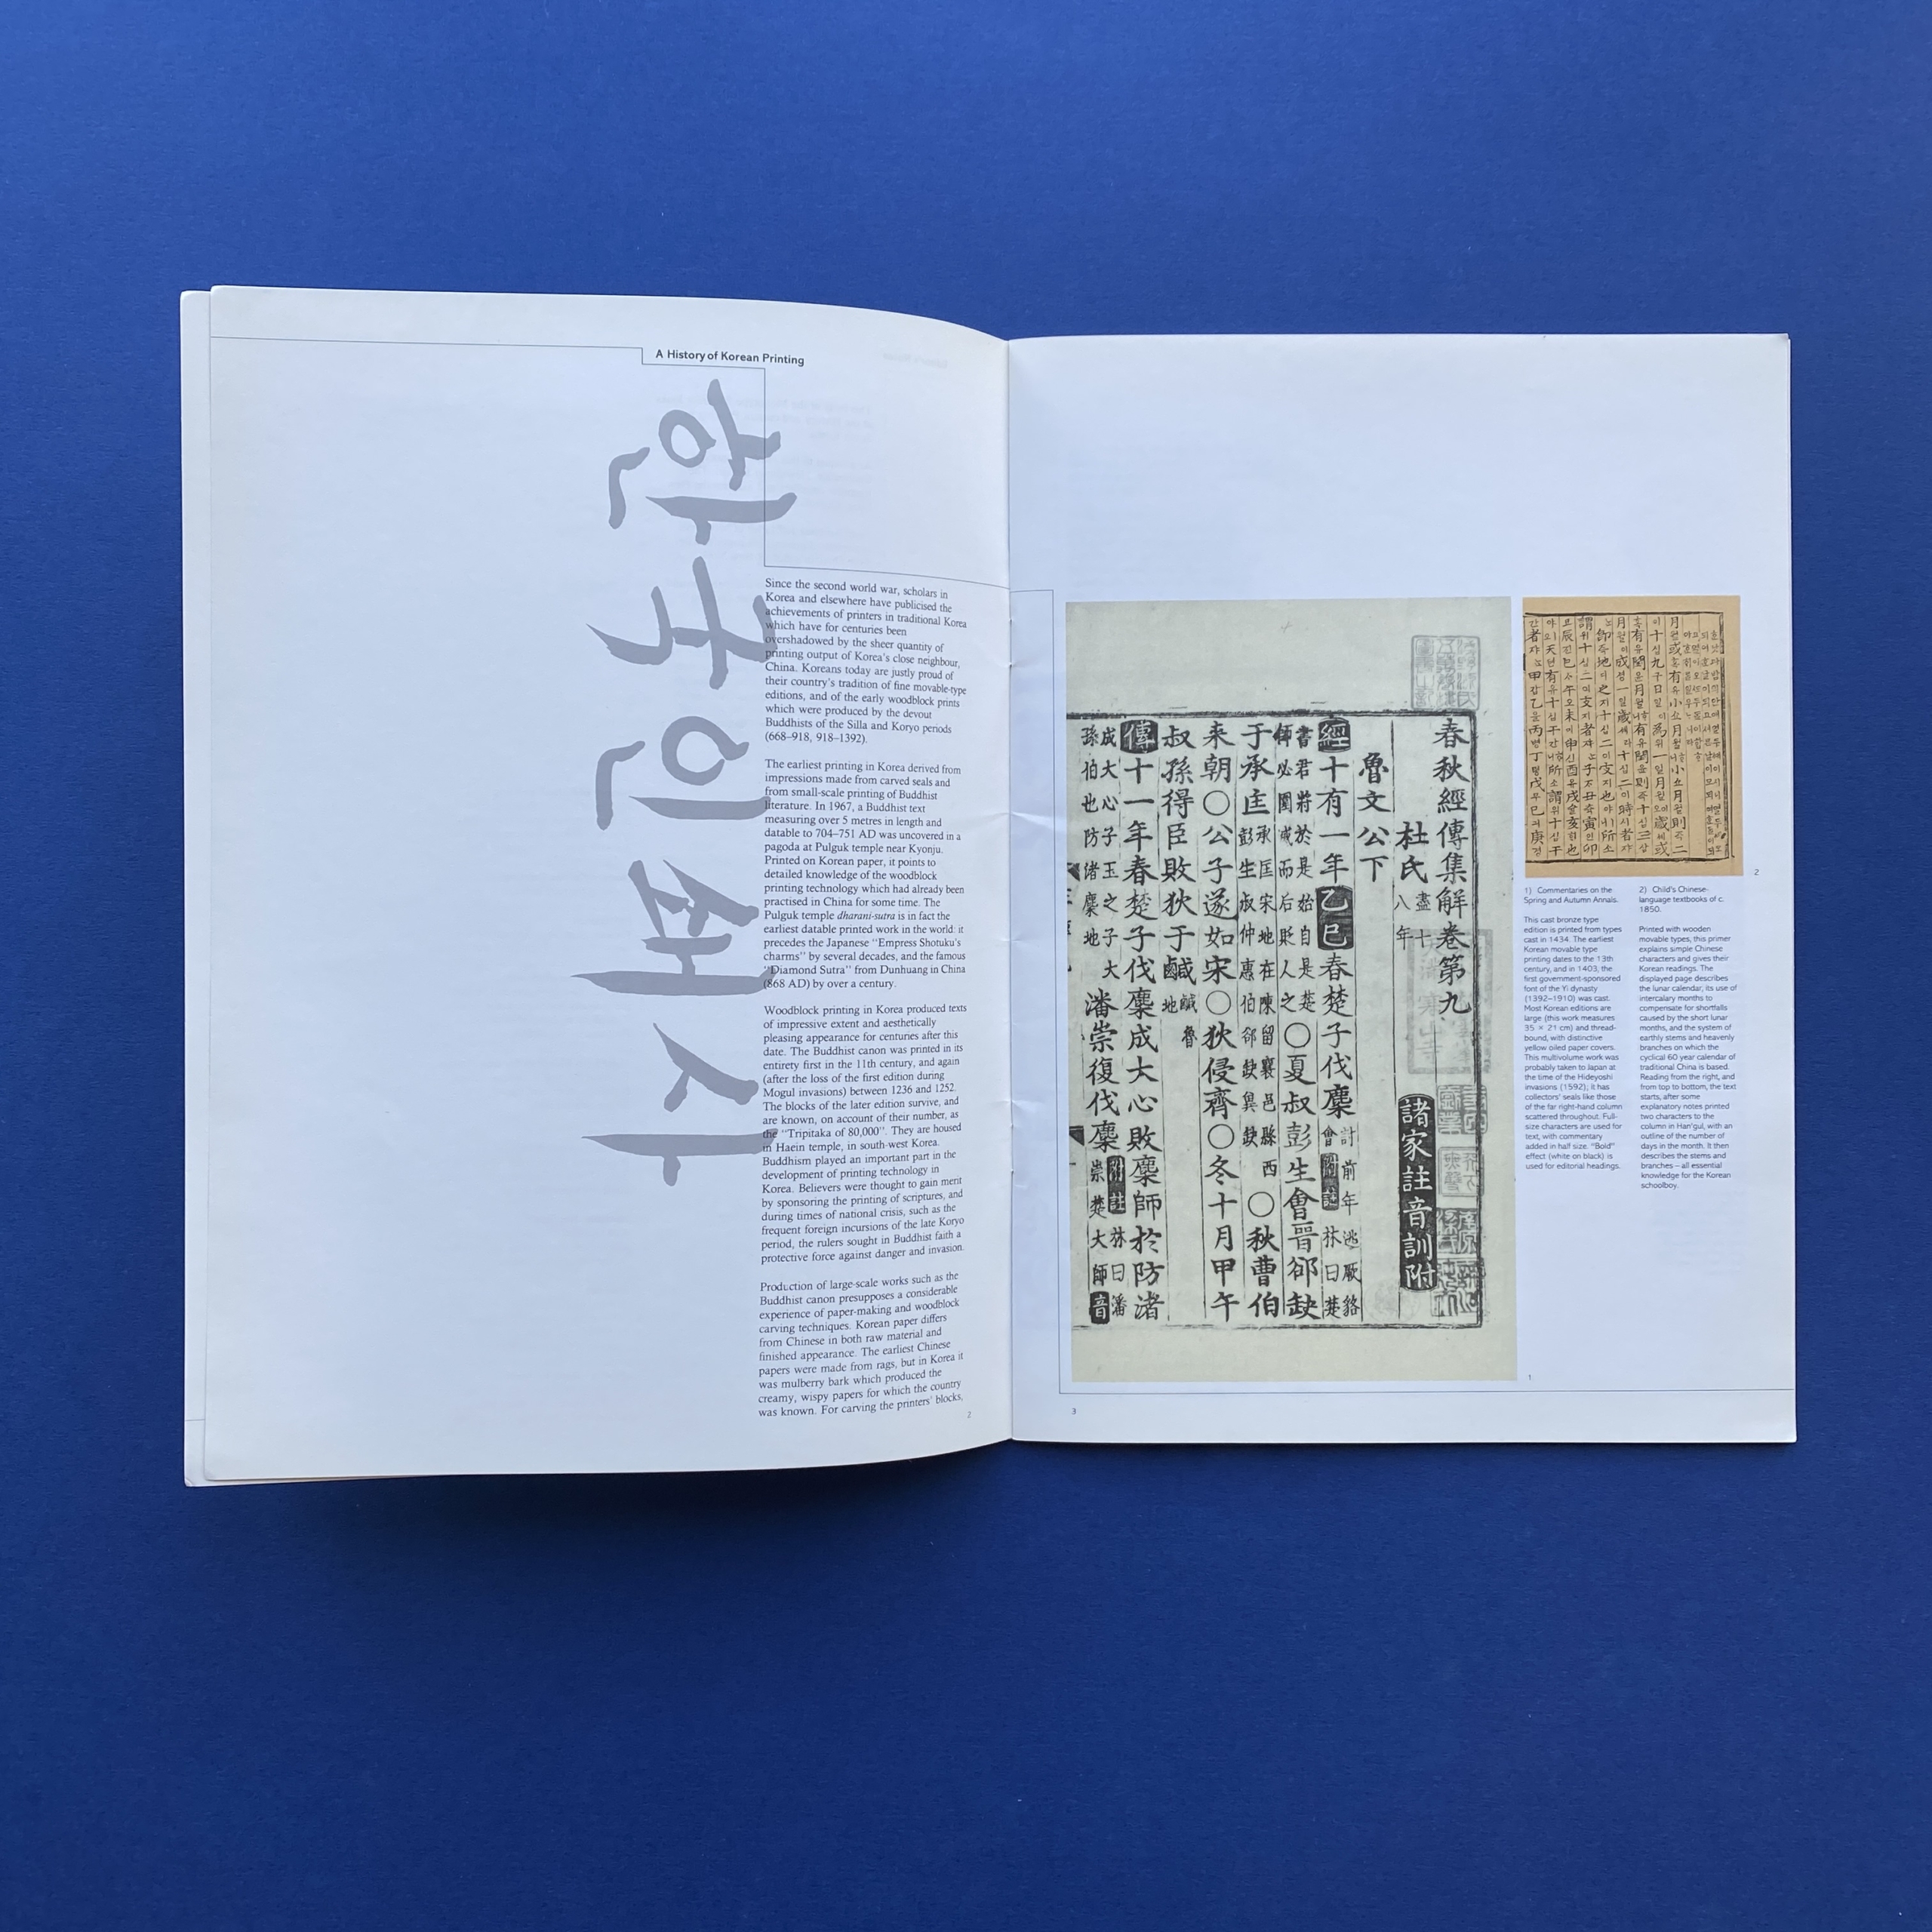 A History of Korean Printing
한국인쇄사
Since the second world war, scholars in
Korea and elsewhere have publicised the
achievements of printers in traditional Korea
which have for centuries been
overshadowed by the sheer quantity of
printing output of Korea's close neighbour,
China. Koreans today are justly proud of
their country's tradition of fine movable-type
editions, and of the early woodblock prints
which were produced by the devout
Buddhists of the Silla and Koryo periods
(668–918, 918–1392).
The earliest printing in Korea derived from
impressions made from carved seals and
from small-scale printing of Buddhist
literature. In 1967, a Buddhist text
measuring over 5 metres in length and
datable to 704–751 AD was uncovered in a
pagoda at Pulguk temple near Kyonju.
Printed on Korean paper, it points to
detailed knowledge of the woodblock
printing technology which had already been
practised in China for some time. The
Pulguk temple dharani-sutra is in fact the
earliest datable printed work in the world: it
precedes the Japanese "Empress Shotuku's
charms" by several decades, and the famous
"Diamond Sutra" from Dunhuang in China
(868 AD) by over a century.
Woodblock printing in Korea produced texts
of impressive extent and aesthetically
pleasing appearance for centuries after this
date. The Buddhist canon was printed in its
entirety first in the 11th century, and again
(after the loss of the first edition during
Mogul invasions) between 1236 and 1252.
The blocks of the later edition survive, and
are known, on account of their number, as
the "Tripitaka of 80,000". They are housed
in Haein temple, in south-west Korea.
Buddhism played an important part in the
development of printing technology in
Korea. Believers were thought to gain merit
by sponsoring the printing of scriptures, and
during times of national crisis, such as the
frequent foreign incursions of the late Koryo
period, the rulers sought in Buddhist faith a
protective force against danger and invasion.
Production of large-scale works such as the
Buddhist canon presupposes a considerable
experience of paper-making and woodblock
carving techniques. Korean paper differs
from Chinese in both raw material and
finished appearance. The earliest Chinese
papers were made from rags, but in Korea it
was mulberry bark which produced the
creamy, wispy papers for which the country
was known. For carving the printers' blocks,
2
春秋經傳集解卷第九
杜氏 盡十八年 諸家註音訓附
魯文公下
經十有一年乙巳春楚子伐麇 討前年逃厥貉會 附註 林曰楚
書君將於是始自是楚師必圍滅而后貶人之○夏叔彭生會晉郤缺
于承匡 承匡宋地在陳留襄邑縣西彭生叔仲惠伯郤缺冀缺○秋曹伯
来朝○公子遂如宋○狄侵齊○冬十月甲午
叔孫得臣敗狄于鹹 鹹魯地
傳十一年春楚子伐麇成大心敗麇師於防渚
成大心子玉之子大孫伯也防渚麇地 潘崇復伐麇 附註林曰潘崇楚大師音
1
3
2
1) Commentaries on the
Spring and Autumn Annals.
This cast bronze type
edition is printed from types
cast in 1434. The earliest
Korean movable type
printing dates to the 13th
century, and in 1403, the
first government-sponsored
font of the Yi dynasty
(1392–1910) was cast.
Most Korean editions are
large (this work measures
35 × 21 cm) and thread-
bound, with distinctive
yellow oiled paper covers.
This multivolume work was
probably taken to Japan at
the time of the Hideyoshi
invasions (1592); it has
collectors' seals like those
of the far right-hand column
scattered throughout. Full-
size characters are used for
text, with commentary
added in half size. "Bold"
effect (white on black) is
used for editorial headings.
2) Child's Chinese-
language textbooks of c.
1850.
Printed with wooden
movable types, this primer
explains simple Chinese
characters and gives their
Korean readings. The
displayed page describes
the lunar calendar, its use of
intercalary months to
compensate for shortfalls
caused by the short lunar
months, and the system of
earthly stems and heavenly
branches on which the
cyclical 60 year calendar of
traditional China is based.
Reading from the right, and
from top to bottom, the text
starts, after some
explanatory notes printed
two characters to the
column in Han'gul, with an
outline of the number of
days in the month. It then
describes the stems and
branches – all essential
knowledge for the Korean
schoolboy.